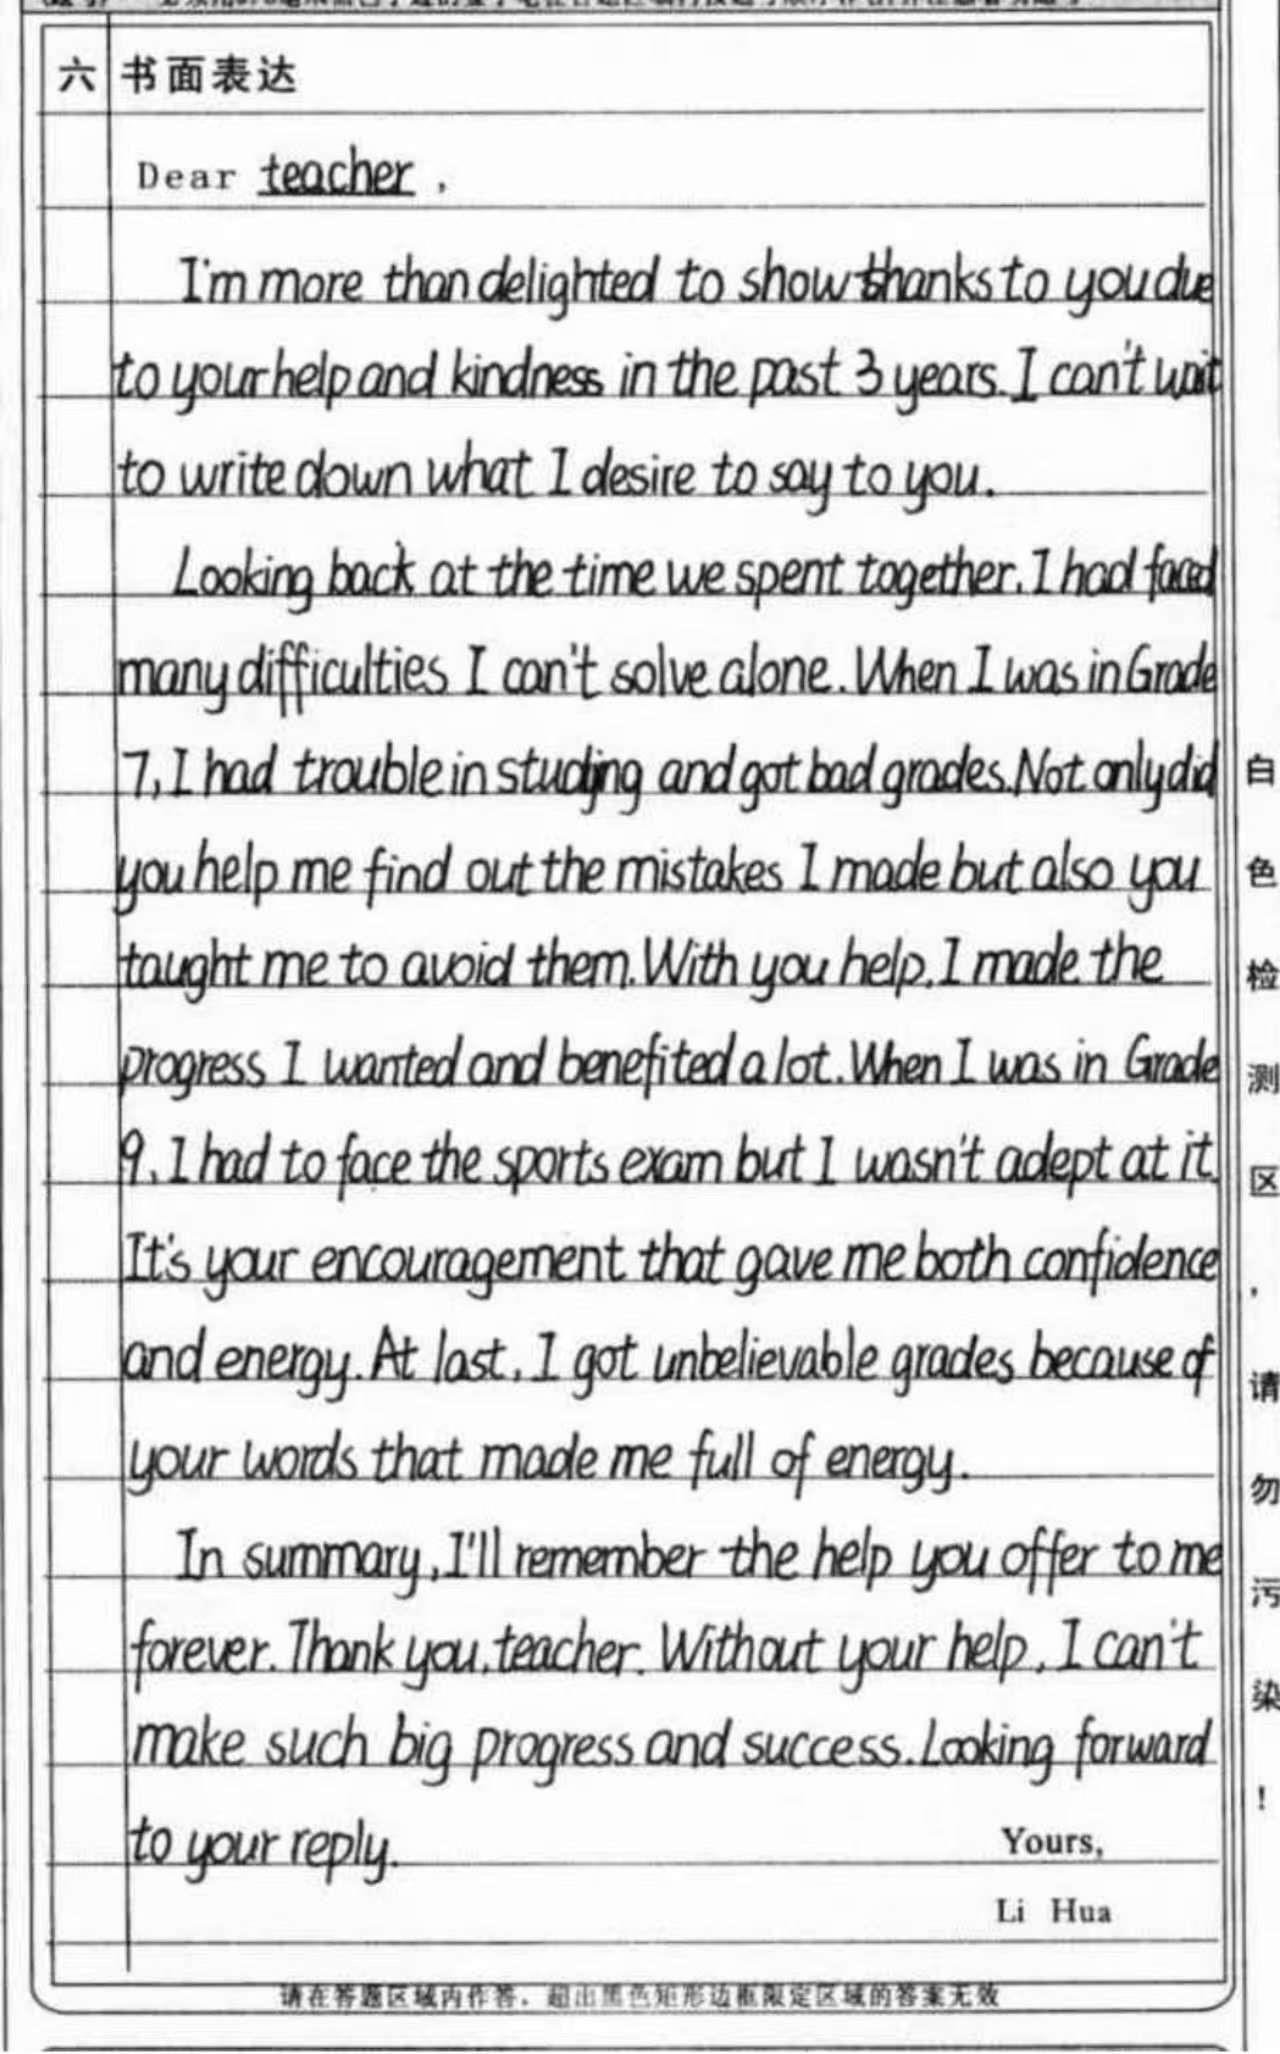 六 书面表达
Dear teacher,
I'm more than delighted to show thanks to you due
to your help and kindness in the past 3 years. I can't wait
to write down what I desire to say to you.
Looking back at the time we spent together. I had faced
many difficulties I can't solve alone. When I was in Grade
7, I had trouble in studing and got bad grades. Not only did
you help me find out the mistakes I made but also you
taught me to avoid them. With you help, I made the
progress I wanted and benefited a lot. When I was in Grade
9, I had to face the sports exam but I wasn't adept at it.
It's your encouragement that gave me both confidence
and energy. At last, I got unbelievable grades because of
your words that made me full of energy.
In summary, I'll remember the help you offer to me
forever. Thank you, teacher. Without your help, I can't
make such big progress and success. Looking forward
to your reply.
Yours,
Li Hua
请在答题区域内作答，超出黑色矩形边框限定区域的答案无效
白色检测区，请勿污染！